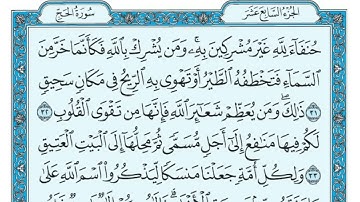 سُورَةُ الحَجّ الجُزءُ السَّابِعَ عَشَرَ
حُنَفَآءَ لِلَّهِ غَيْرَ مُشْرِكِينَ بِهِۦۚ وَمَن يُشْرِكْ بِٱللَّهِ فَكَأَنَّمَا خَرَّ مِنَ
ٱلسَّمَآءِ فَتَخْطَفُهُ ٱلطَّيْرُ أَوْ تَهْوِى بِهِ ٱلرِّيحُ فِى مَكَانٍ سَحِيقٍ
٣١ ذَٰلِكَۖ وَمَن يُعَظِّمْ شَعَٰٓئِرَ ٱللَّهِ فَإِنَّهَا مِن تَقْوَى ٱلْقُلُوبِ ٣٢
لَكُمْ فِيهَا مَنَٰفِعُ إِلَىٰٓ أَجَلٍ مُّسَمًّى ثُمَّ مَحِلُّهَآ إِلَى ٱلْبَيْتِ ٱلْعَتِيقِ
٣٣ وَلِكُلِّ أُمَّةٍ جَعَلْنَا مَنسَكًا لِّيَذْكُرُوا۟ ٱسْمَ ٱللَّهِ عَلَىٰ